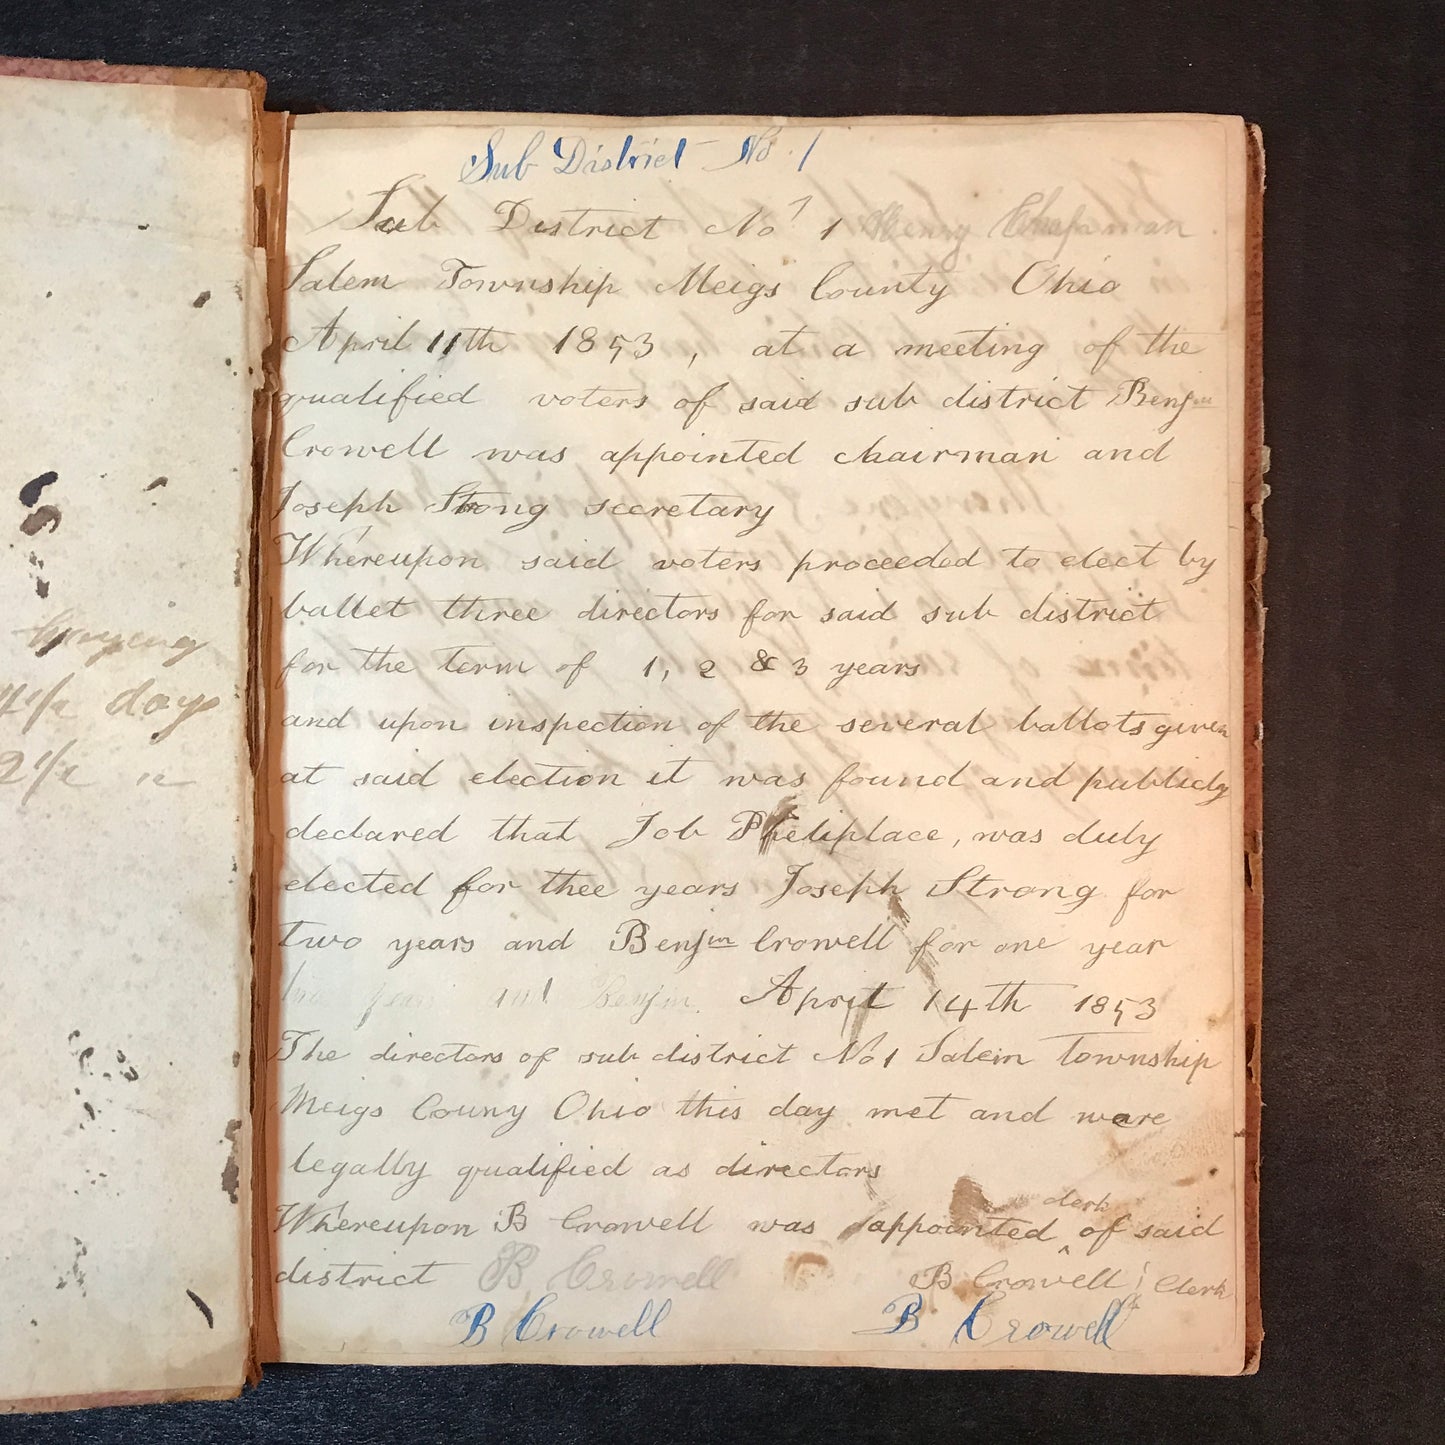 day
2 1/2 "
Sub District No. 1
Sub District No 1 Henry Chapman
Salem Township Meigs County Ohio
April 11th 1853, at a meeting of the
qualified voters of said sub district Benjm
Crowell was appointed chairman and
Joseph Strong secretary
Whereupon said voters proceeded to elect by
ballet three directors for said sub district
for the term of 1, 2 & 3 years
and upon inspection of the several ballots given
at said election it was found and publicly
declared that Job Pheliplace, was duly
elected for thee years Joseph Strong for
two years and Benjm Crowell for one year
two years and Benjm. April 14th 1853
The directors of sub district No 1 Salem Township
Meigs Couny Ohio this day met and ware
legally qualified as directors
Whereupon B Crowell was appointed ^clerk of said
district B Crowell B Crowell Clerk
B Crowell B Crowell